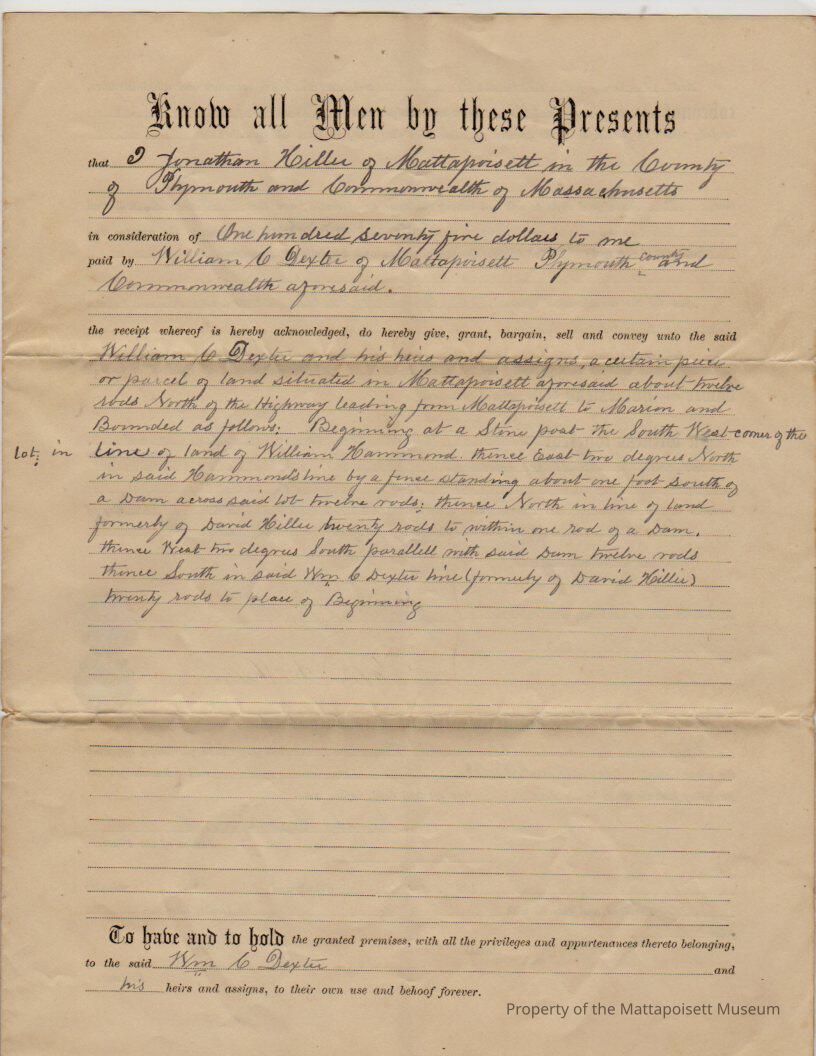 Know all Men by these Presents
that I Jonathan Hiller of Mattapoisett in the County
of Plymouth and Commonwealth of Massachusetts
in consideration of One hundred seventy five dollars to me
paid by William C Dexter of Mattapoisett Plymouth county and
Commonwealth aforesaid.
the receipt whereof is hereby acknowledged, do hereby give, grant, bargain, sell and convey unto the said
William C Dexter and his heirs and assigns, a certain piece
or parcel of land situated in Mattapoisett aforesaid about twelve
rods North of the Highway leading from Mattapoisett to Marion and
Bounded as follows: Beginning at a Stone post the South West corner of the
lot; in line of land of William Hammond. thence East two degrees North
in said Hammonds line by a fence standing about one foot South of
a Dam across said lot twelve rods; thence North in line of land
formerly of David Hiller twenty rods to within one rod of a Dam.
thence West two degrees South parallell with said Dam twelve rods
thence South in said Wm C Dexter line (formerly of David Hiller)
twenty rods to place of Beginning
To have and to hold the granted premises, with all the privileges and appurtenances thereto belonging,
to the said Wm C Dexter and
his heirs and assigns, to their own use and behoof forever.
Property of the Mattapoisett Museum